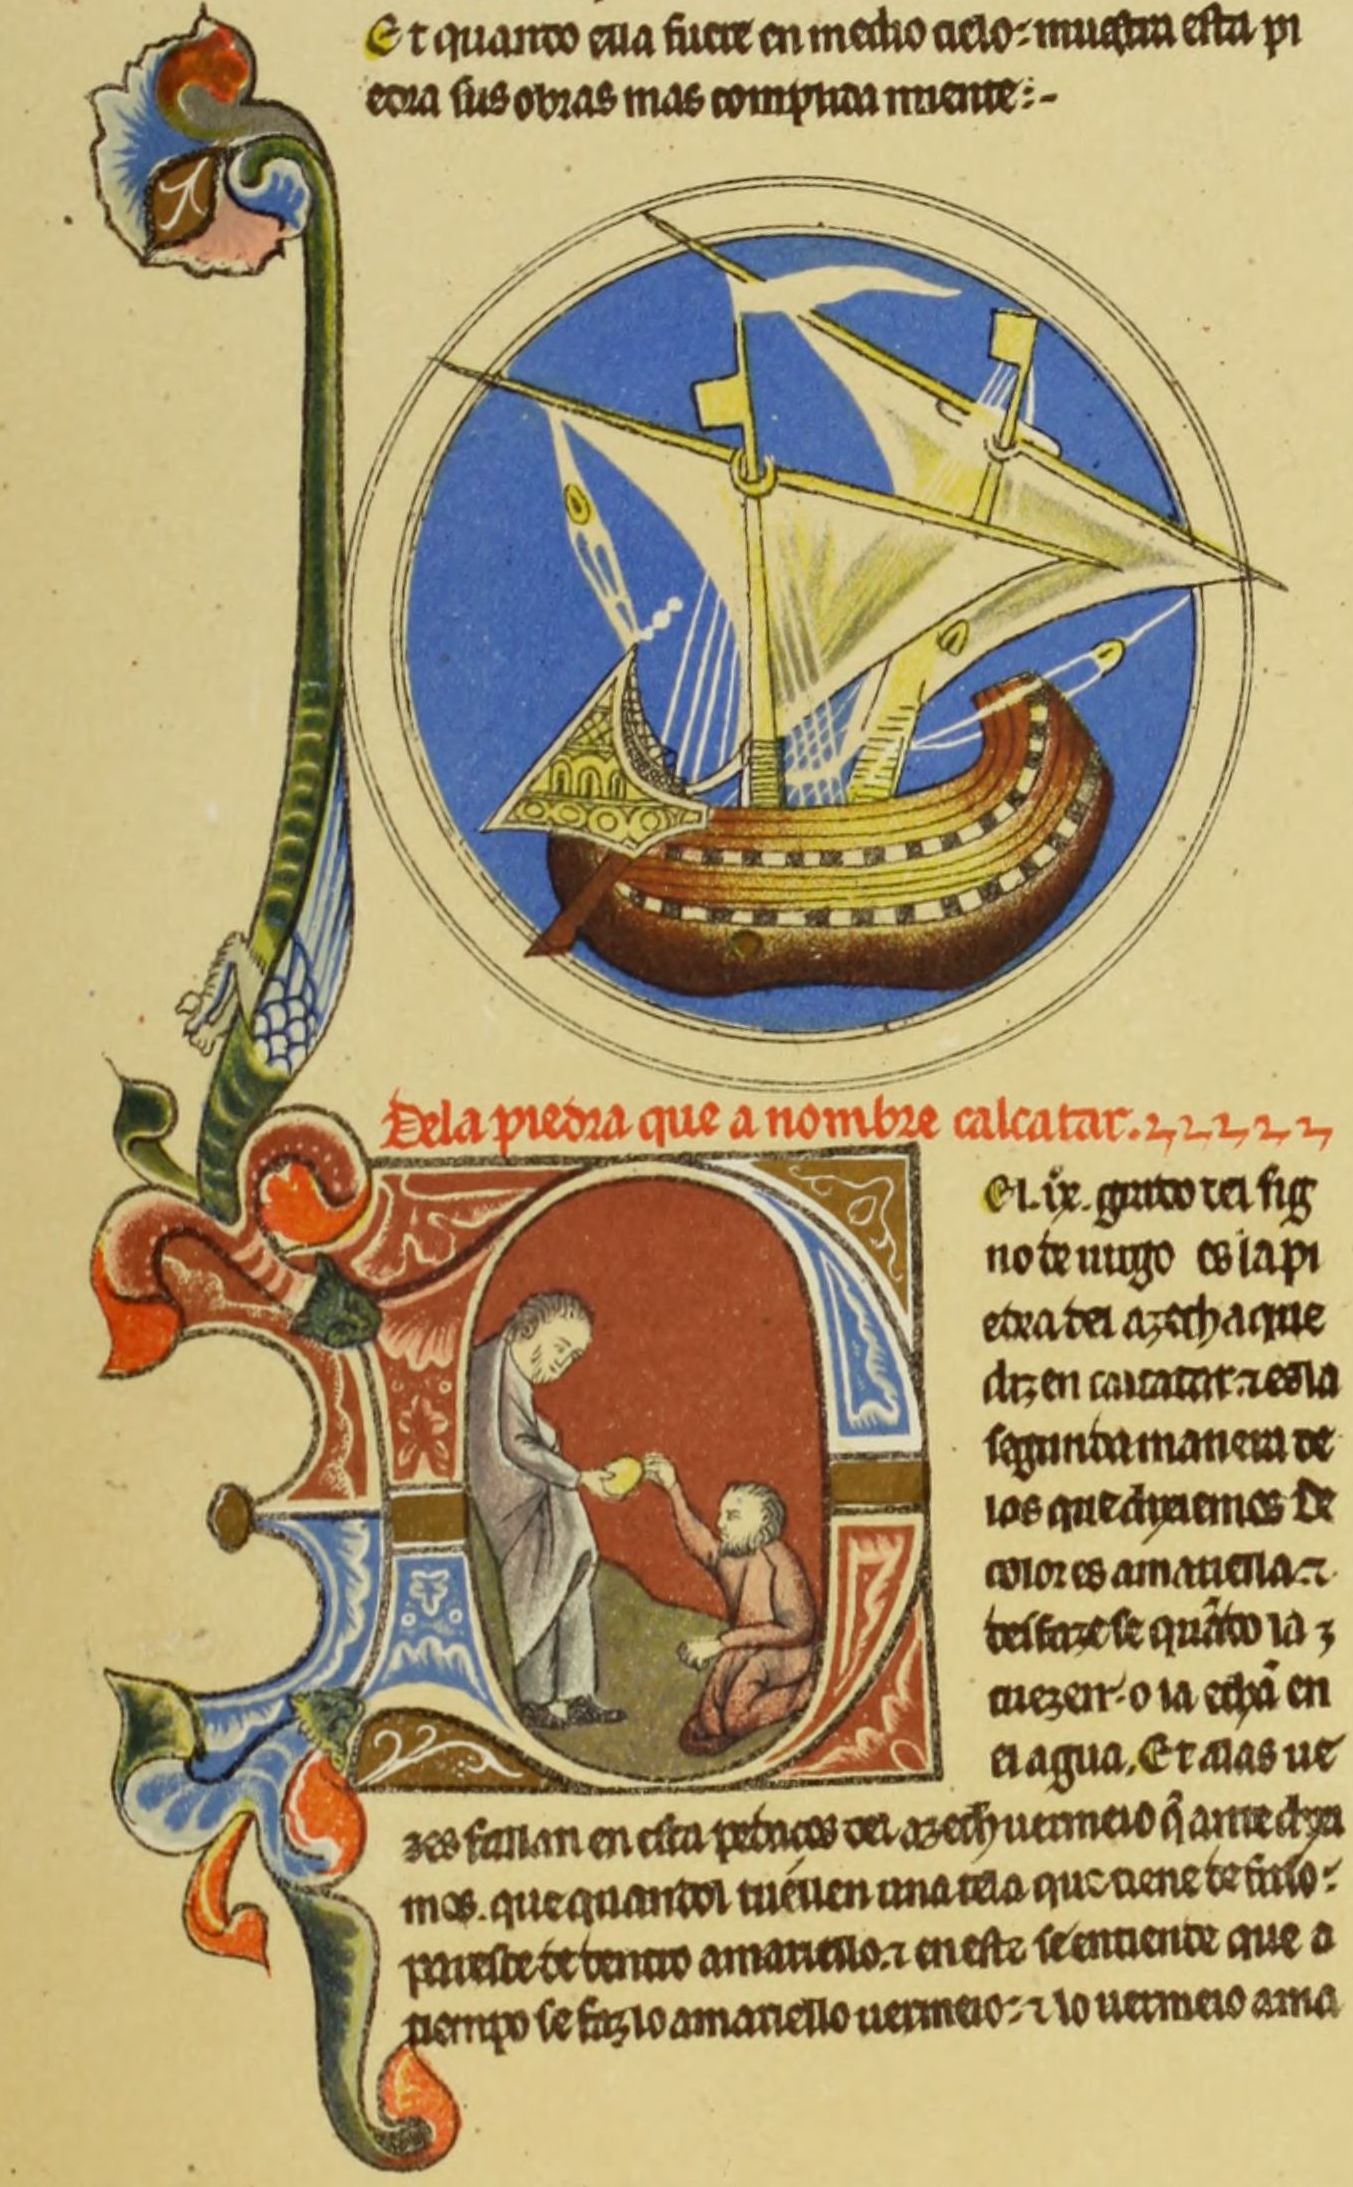 Et quando ella fuere en medio cielo: muestra esta pi
edra sus obras mas complida miente:-
De la piedra que a nombre calcatar.
El .ix. grado del sig
no de uirgo es la pi
edra del azech a que
dizen calcatar. ⁊ es la
segunda manera de
las que dixiemos. De
color es amariella. ⁊
desfaze se quãdo la
cuezen. o la echã en
el agua. Et alas ue
zes fallan en esta pedaços del azech uermeio q̃ ante dixi
mos. que quandol tuellen una tela que tiene de suso:
paresce de dentro amariello. ⁊ en esto se entiende que a
tiempo se faz lo amariello uermeio: ⁊ lo uermeio ama